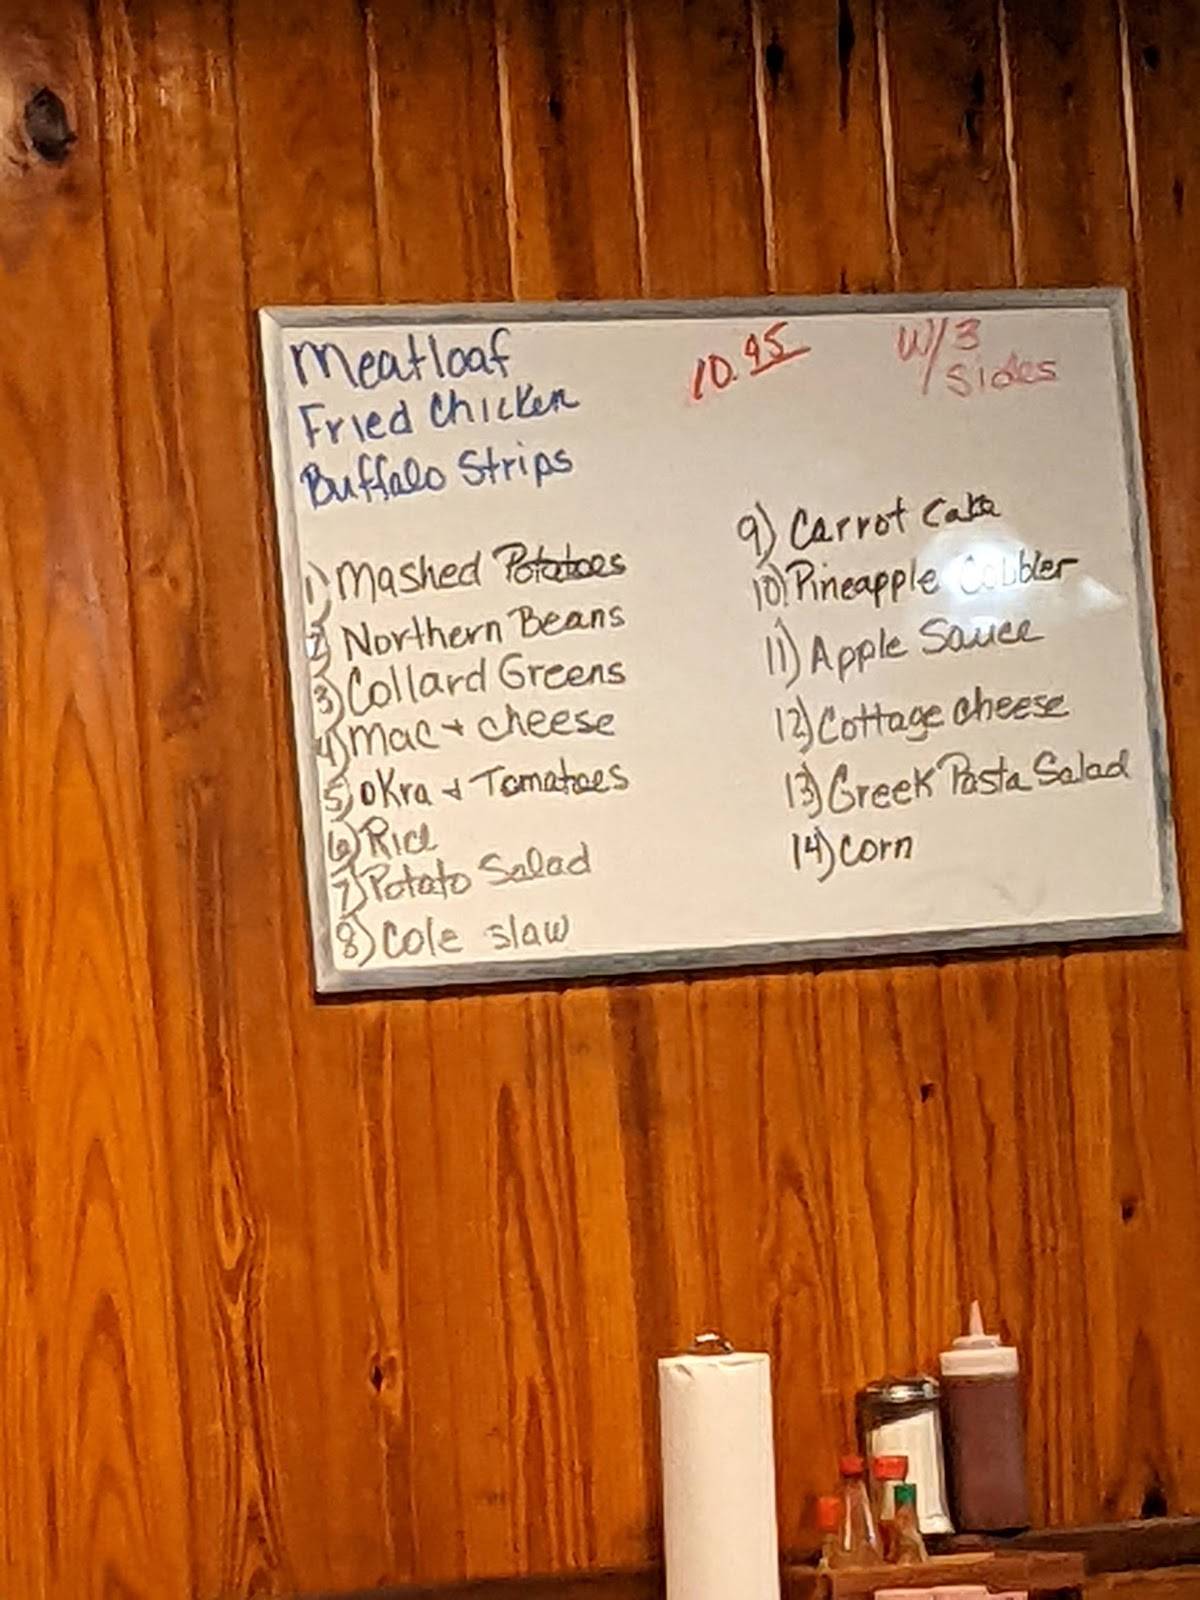 Meatloaf 10.95 W/3
Fried Chicken Sides
Buffalo Strips
1) Mashed Potatoes
2) Northern Beans
3) Collard Greens
4) Mac + cheese
5) okra + Tomatoes
6) Rice
7) Potato Salad
8) Cole slaw
9) Carrot Cake
10) Pineapple Cobbler
11) Apple Sauce
12) Cottage cheese
13) Greek Pasta Salad
14) Corn